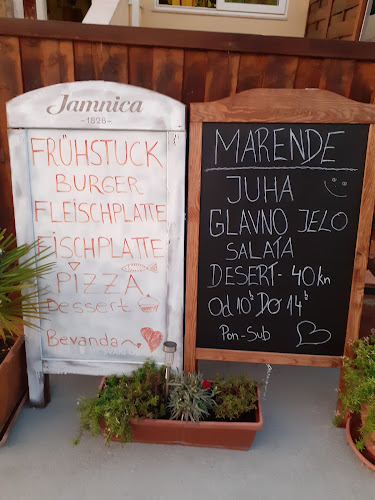 Jamnica
-1828-
FRÜHSTUCK
BURGER
FLEISCHPLATTE
FISCHPLATTE
PIZZA
Dessert
Bevanda
MARENDE
JUHA
GLAVNO JELO
SALATA
DESERT - 40 kn
Od 10h Do 14h
Pon-Sub